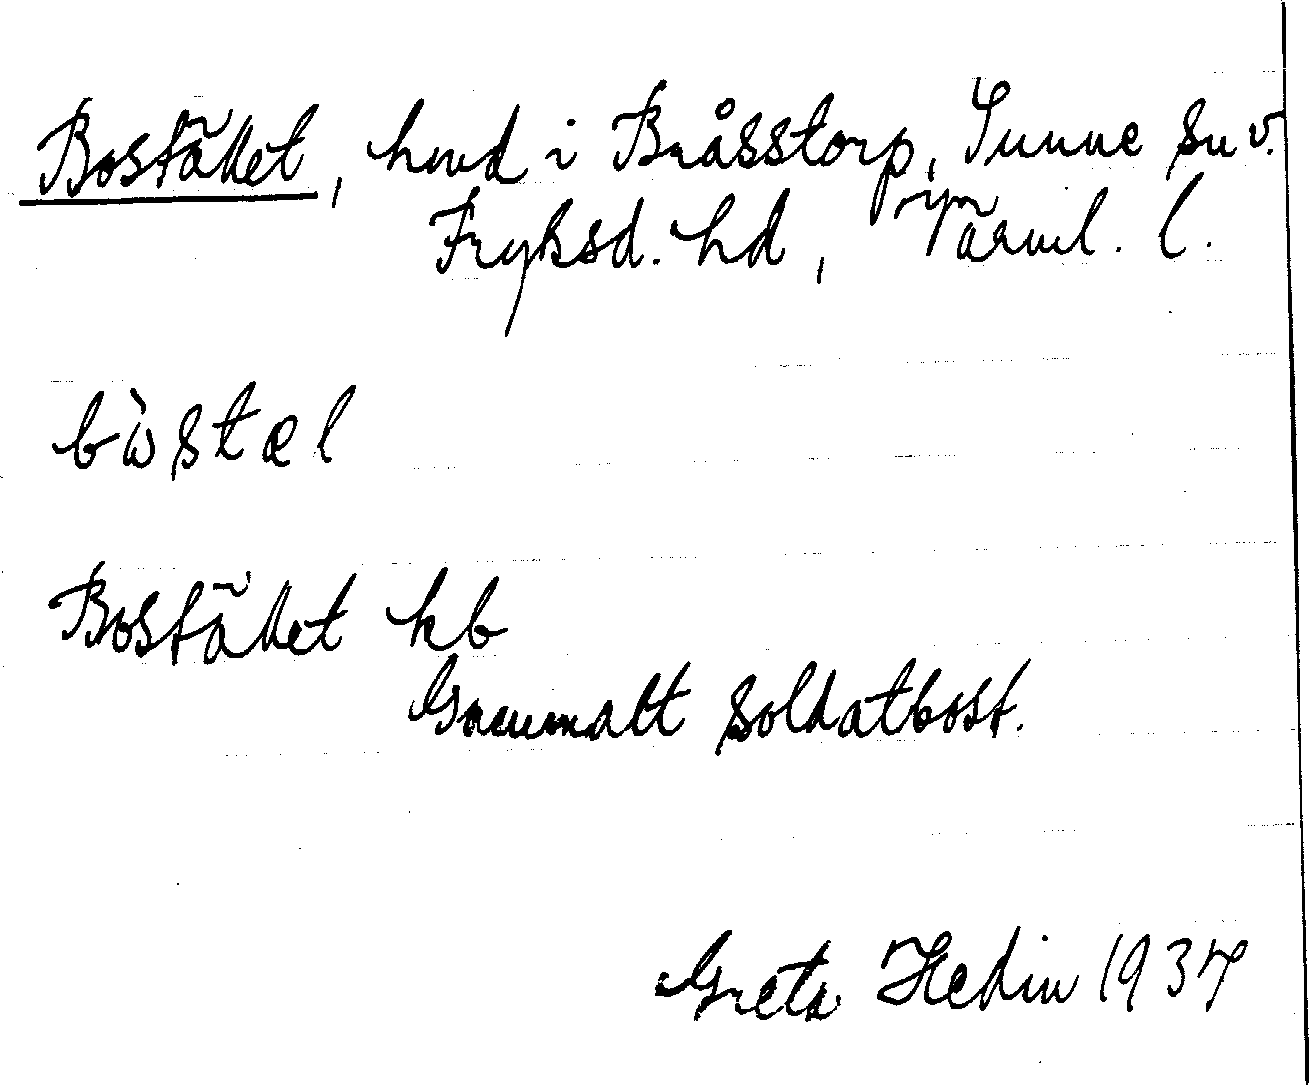 Bostället, hmd i Bråsstorp, Sunne sn v.
Fryksd. hd, Värml. l.
bòstæl
Bostället kb
Gammalt soldatbost.
Greta Hedin 1937